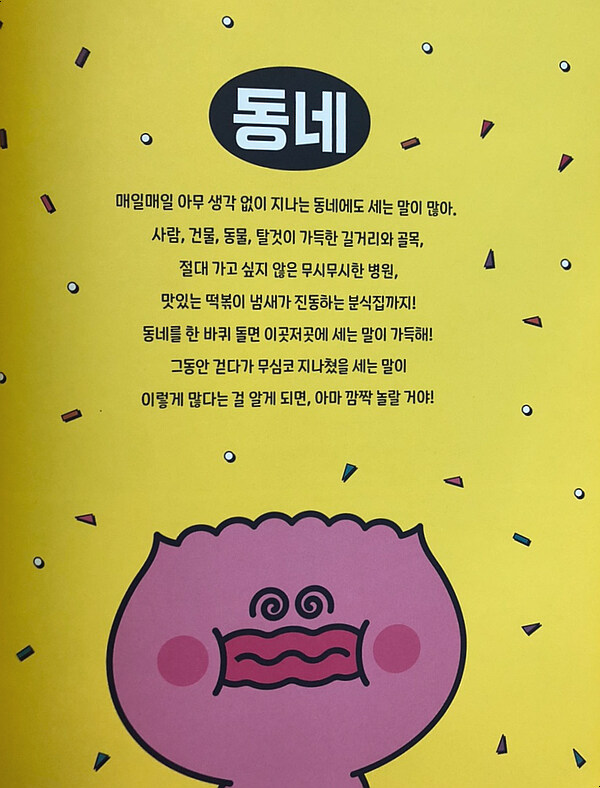 동네
매일매일 아무 생각 없이 지나는 동네에도 세는 말이 많아.
사람, 건물, 동물, 탈것이 가득한 길거리와 골목,
절대 가고 싶지 않은 무시무시한 병원,
맛있는 떡볶이 냄새가 진동하는 분식집까지!
동네를 한 바퀴 돌면 이곳저곳에 세는 말이 가득해!
그동안 걷다가 무심코 지나쳤을 세는 말이
이렇게 많다는 걸 알게 되면, 아마 깜짝 놀랄 거야!